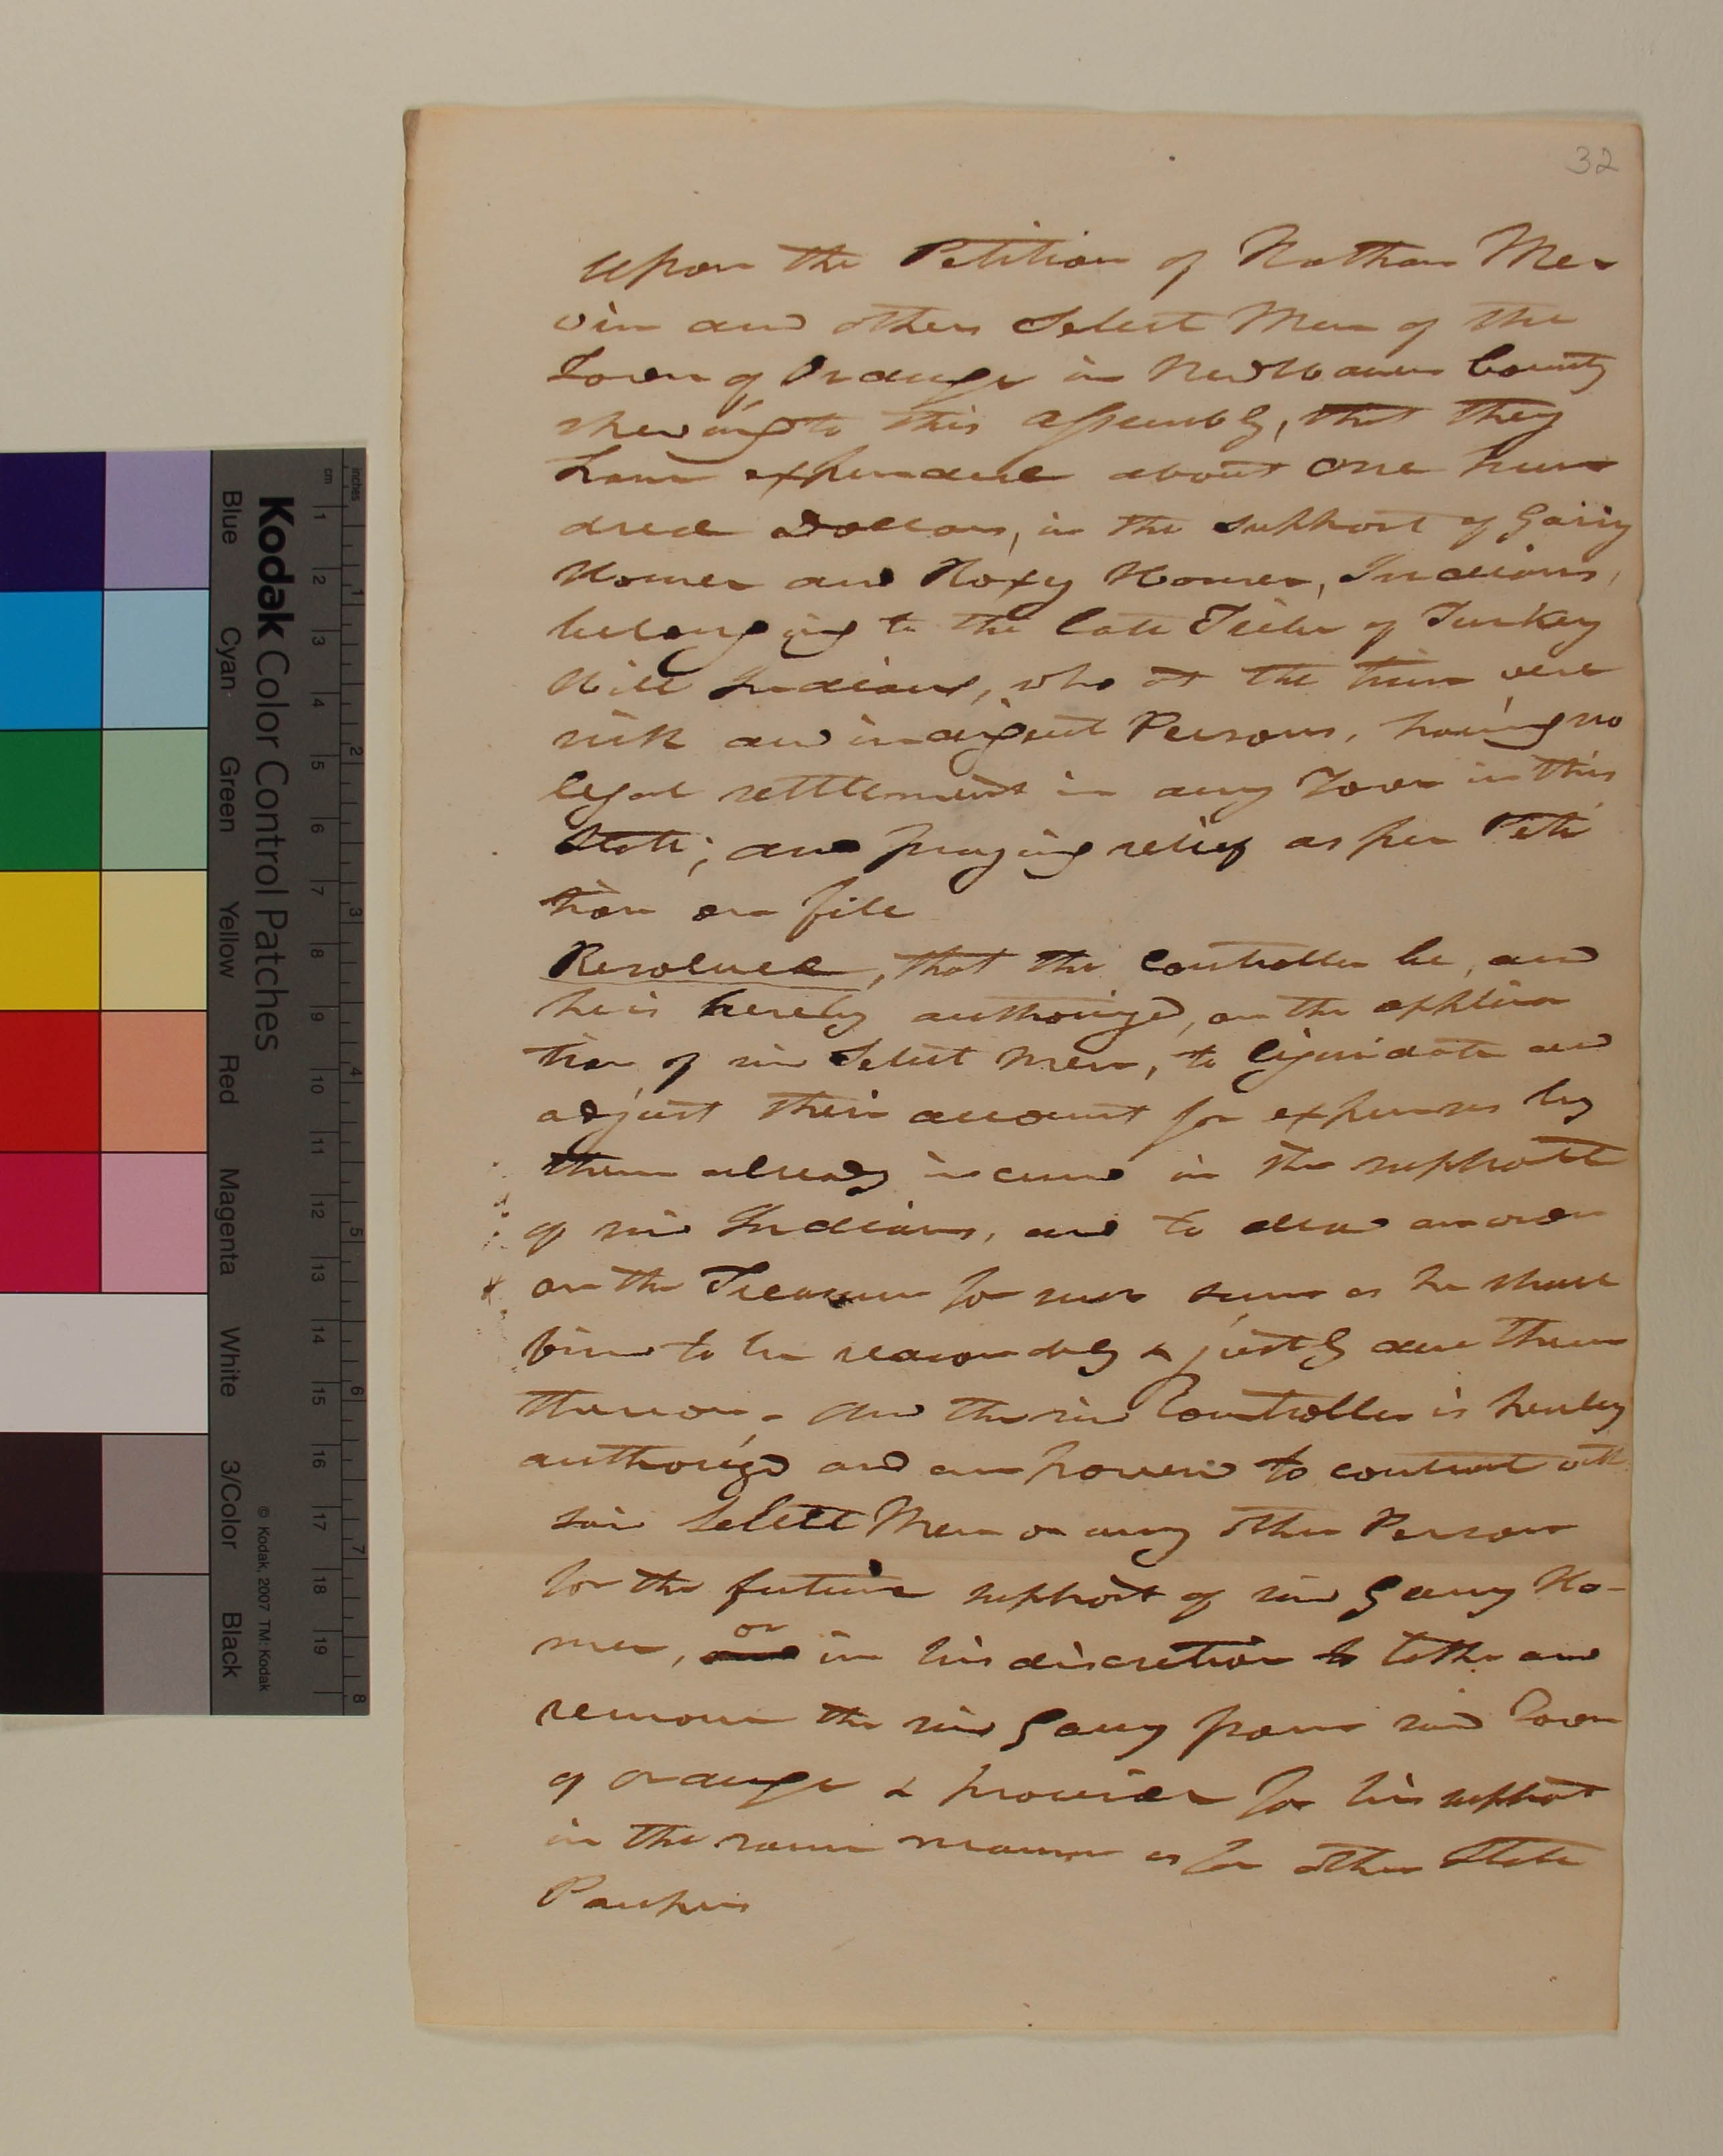 32
Upon the Petition of Nathan Mer
vin and others Select Men of the
Town of Orange in New Haven County
shewing to this Assembly, that they
have expended about One hun
dred Dollars, in the support of Garry
Homer and Roxy Homer, Indians,
belonging to the late Tribe of Turkey
Hill Indians, who at the time were
sick and indigent Persons, having no
legal settlement in any Town in this
State; and praying relief as per Peti
tion on file
Resolved, that the Controller be, and
he is hereby authorized, on the applica
tion of said Select Men, to liquidate and
adjust their account for expenses by
them already incurred in the support
of said Indians, and to draw an order
on the Treasurer for such sum as he shall
find to be reasonably & justly due them
thereon. And the said Controller is hereby
authorized and empowered to contract with
said Select Men or any other Person
for the future support of said Garry Ho-
mer, and or in his discretion to take and
remove the said Garry from said Town
of Orange & provide for his support
in the same manner as for other State
Paupers
Kodak Color Control Patches
© Kodak, 2007 TM: Kodak
Blue Cyan Green Yellow Red Magenta White 3/Color Black
inches 1 2 3 4 5 6 7 8
cm 1 2 3 4 5 6 7 8 9 10 11 12 13 14 15 16 17 18 19